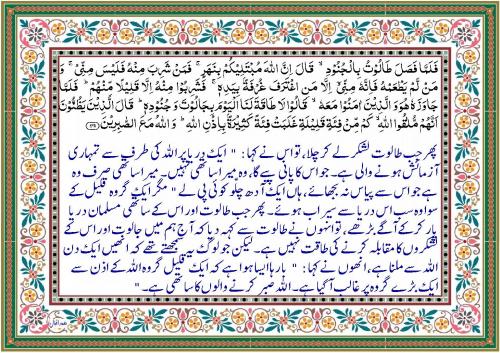 فَلَمَّا فَصَلَ طَالُوْتُ بِالْجُنُوْدِ ۙ قَالَ اِنَّ اللّٰهَ مُبْتَلِيْكُمْ بِنَهَرٍ ۚ فَمَنْ شَرِبَ مِنْهُ فَلَيْسَ مِنِّيْ ۚ وَ
مَنْ لَّمْ يَطْعَمْهُ فَاِنَّهٗ مِنِّيْٓ اِلَّا مَنِ اغْتَرَفَ غُرْفَةًۢ بِيَدِهٖ ۚ فَشَرِبُوْا مِنْهُ اِلَّا قَلِيْلًا مِّنْهُمْ ۭ فَلَمَّا
جَاوَزَهٗ هُوَ وَالَّذِيْنَ اٰمَنُوْا مَعَهٗ ۙ قَالُوْا لَا طَاقَةَ لَنَا الْيَوْمَ بِجَالُوْتَ وَجُنُوْدِهٖ ۭ قَالَ الَّذِيْنَ يَظُنُّوْنَ
اَنَّهُمْ مُّلٰقُوا اللّٰهِ ۙ كَمْ مِّنْ فِئَةٍ قَلِيْلَةٍ غَلَبَتْ فِئَةً كَثِيْرَةًۢ بِاِذْنِ اللّٰهِ ۭ وَاللّٰهُ مَعَ الصّٰبِرِيْنَ ٢٤٩
پھر جب طالوت لشکر لے کر چلا، تو اس نے کہا : " ایک دریا پر اللہ کی طرف سے تمہاری
آزمائش ہونے والی ہے۔ جو اس کا پانی پیے گا، وہ میرا ساتھی نہیں۔ میرا ساتھی صرف وہ
ہے جو اس سے پیاس نہ بجھائے، ہاں ایک آدھ چلو کوئی پی لے " مگر ایک گروہ قلیل کے
سوا وہ سب اس دریا سے سیراب ہوئے۔ پھر جب طالوت اور اس کے ساتھی مسلمان دریا
پار کر کے آگے بڑھے، تو انہوں نے طالوت سے کہہ دیا کہ آج ہم میں جالوت اور اس کے
لشکروں کا مقابلہ کرنے کی طاقت نہیں ہے۔ لیکن جو لوگ یہ سمجھتے تھے کہ انھیں ایک دن
اللہ سے ملنا ہے، انھوں نے کہا : " بارہا ایسا ہوا ہے کہ ایک قلیل گروہ اللہ کے اذن سے
ایک بڑے گروہ پر غالب آگیا ہے۔ اللہ صبر کرنے والوں کا ساتھی ہے۔ "